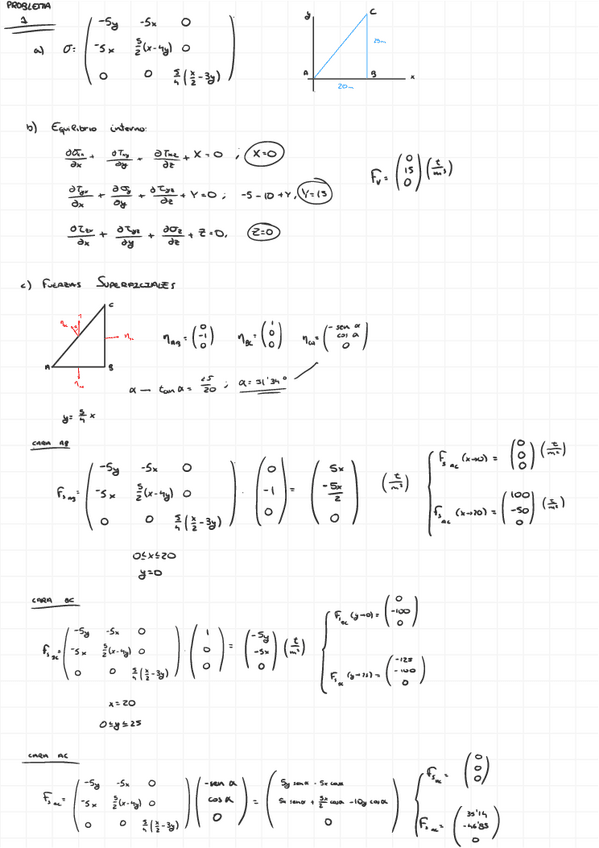 PROBLEMA
1
a) σ: ( -5y -5x 0
-5x 5/2(x-4y) 0
0 0 5/4(x/2-3y) )
y
C
25m
A
B
x
20m
b) Equilibrio interno:
∂σx/∂x + ∂τxy/∂y + ∂τxz/∂z + X = 0 ; X=0
∂τyx/∂x + ∂σy/∂y + ∂τyz/∂z + Y = 0 ; -5-10+Y, Y=15
Fv = (0 15 0) (t/m³)
∂τzx/∂x + ∂τyz/∂y + ∂σz/∂z + Z = 0, Z=0
c) FUERZAS SUPERFICIALES
C
A
B
nAB = (0 -1 0) nBC = (1 0 0) nCA = (-sen α cos α 0)
α — tan α = 25/20 ; α = 51'34°
y = 5/4 x
CARA AB
Fs AB = ( -5y -5x 0
-5x 5/2(x-4y) 0
0 0 5/4(x/2-3y) ) · (0 -1 0) = (5x -5x/2 0) (t/m²)
Fs AC (x→0) = (0 0 0) (t/m²)
Fs AC (x→20) = (100 -50 0) (t/m²)
0≤x≤20
y=0
CARA BC
Fs BC = ( -5y -5x 0
-5x 5/2(x-4y) 0
0 0 5/4(x/2-3y) ) · (1 0 0) = (-5y -5x 0) (t/m²)
Fs BC (y→0) = (0 -100 0)
Fs BC (y→25) = (-125 -100 0)
x=20
0≤y≤25
CARA AC
Fs AC = ( -5y -5x 0
-5x 5/2(x-4y) 0
0 0 5/4(x/2-3y) ) (-sen α cos α 0) = (5y senα - 5x cosα
5x senα + 5x/2 cosα - 10y cosα
0)
Fs AC = (0 0 0)
Fs AC = (35'14 -46'85 0)